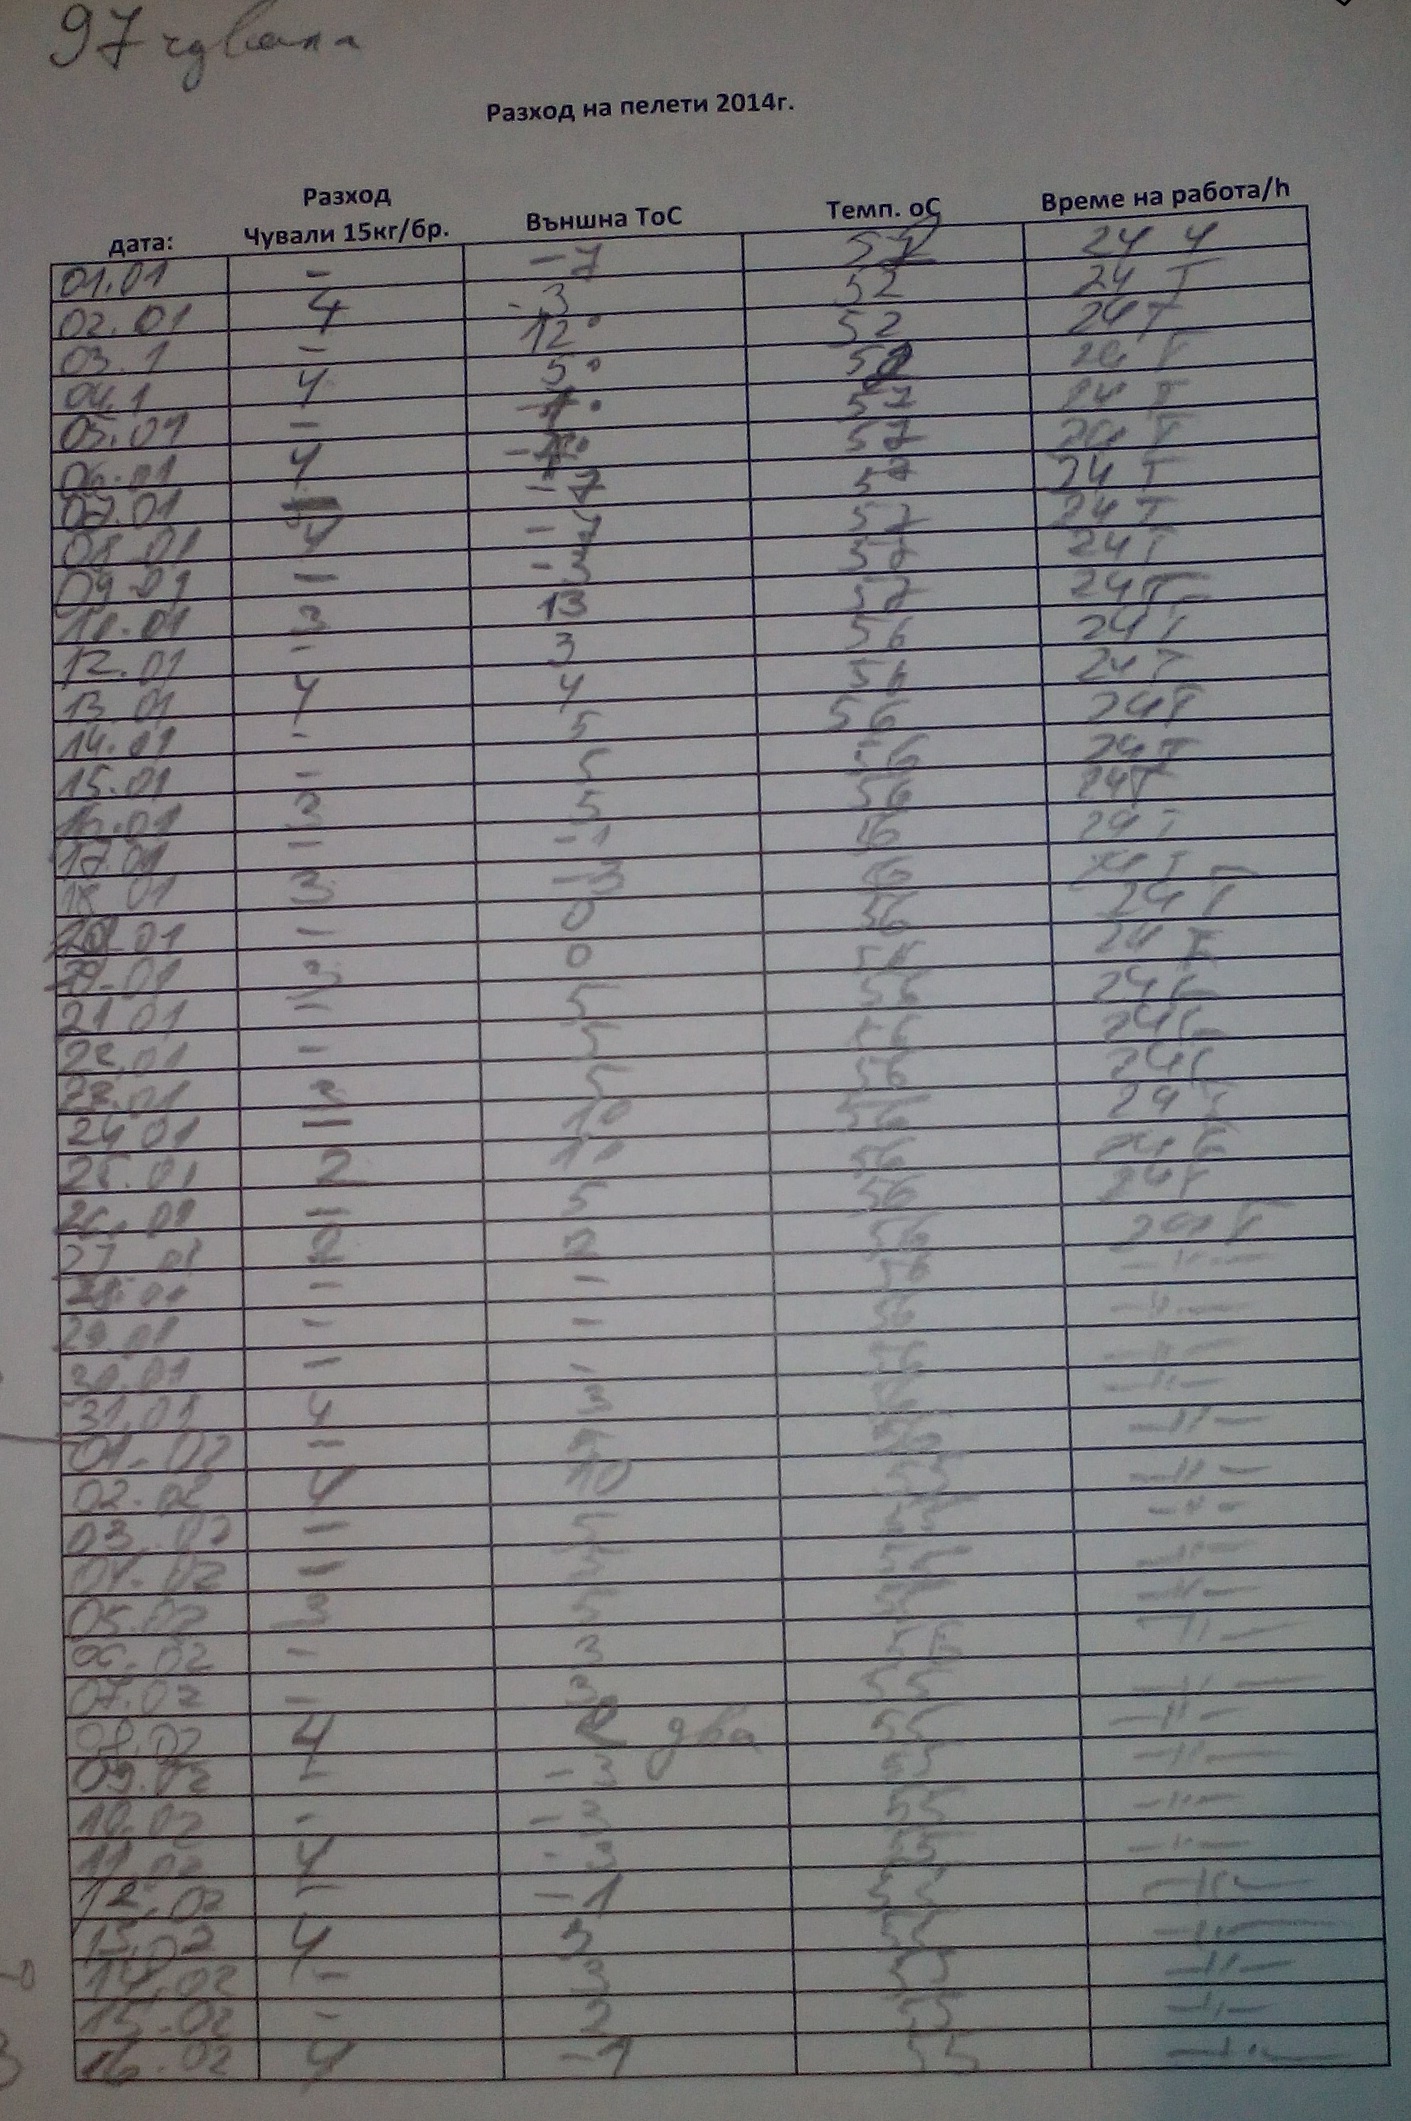 97 чувала
Разход на пелети 2014г.
Разход
дата: Чували 15кг/бр. Външна ТоС Темп. оС Време на работа/h
01.01 - -7 57 24 ч
02.01 4 -3 52 24 T
03.1 - 12° 52 24 T
04.1 4 5° 24 T
05.01 - 57 24 T
06.01 4 57 24 T
07.01 -7 57 24 T
08.01 4 -7 57 24 T
09.01 - -3 57 24 T
3 13 57 24 T
12.01 - 3 56 24 T
13.01 4 4 56 24 T
14.01 - 5 56 24 T
15.01 - 5 56 24 T
16.01 3 5 56 24 T
17.01 - -1 56 24 T
18 01 3 -3 56 24 T
01 - 0 56 24 T
01 3 0 56 24 T
21 01 - 5 56 24
22.01 - 5 56 24
23.01 3 5 56 24
24 01 - 10 56 24
25.01 2 56 24
26.01 - 5 56 24 T
27 01 2 2 56 24 T
28.01 - - 56 -"-
29.01 - - 56 -"-
30.01 - - 56 -"-
31.01 4 3 56 -"-
01-02 - 5 56 -"-
02.02 4 10 55 -"-
03.02 - 5 55 -"-
04.02 - 5 55 -"-
05.02 3 5 55 -"-
06.02 - 3 -"-
07.02 - 3 55 -"-
08.02 4 2 два 55 -"-
09.02 - -3 55 -"-
10.02 - -3 55 -"-
11.02 4 -3 55 -"-
12.02 - -1 55 -"-
13.02 4 3 55 -"-
14.02 - 3 55 -"-
15.02 - 2 55 -"-
16.02 4 -1 55 -"-